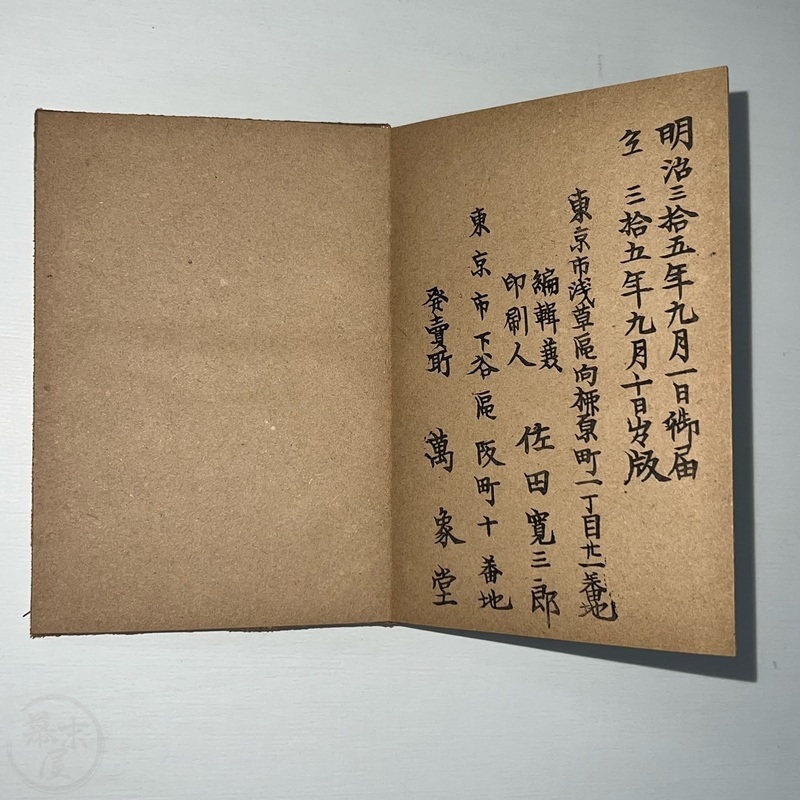 明治三拾五年九月一日御届
仝 三拾五年九月十日出版
東京市浅草區向柳原町一丁目廿一番地
編輯兼
印刷人
佐田寛三郎
東京市下谷區阪町十番地
發賣所 萬象堂